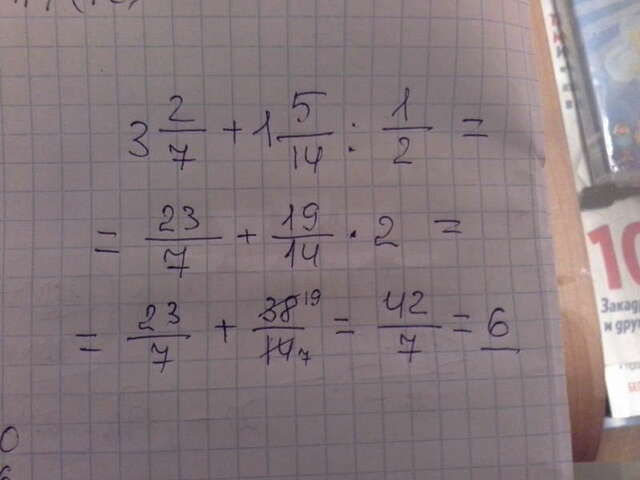 3 2/7 + 1 5/14 : 1/2 =
= 23/7 + 19/14 · 2 =
= 23/7 + 38 19/14 7 = 42/7 = 6
10
Закад
и друг